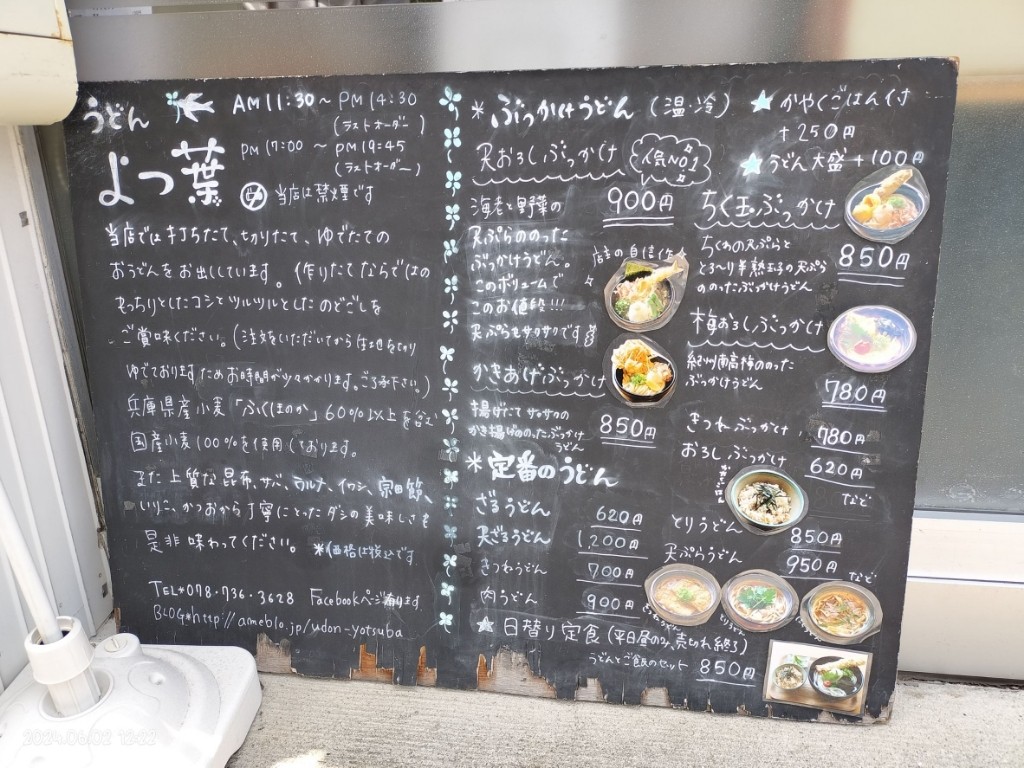 うどん
よつ葉
AM 11:30～PM 14:30
(ラストオーダー)
PM 17:00 ～ PM 19:45
(ラストオーダー)
当店は禁煙です
当店では打ちたて、切りたて、ゆでたての
おうどんをお出ししています。(作りたてならではの
もっちりとしたコシとツルツルとしたのどごしを
ご賞味ください。(注文をいただいてから生地をきり
ゆでておりますためお時間が少々かかります。ご了承下さい。)
兵庫県産小麦「ふくほのか」60%以上を含む
国産小麦100%を使用しております。
また上質な昆布、サバ、ウルメ、イワシ、宗田節、
いりこ、かつおから丁寧にとったダシの美味しさを
是非味わってください。 *(価格は税込です
TEL*078・736・3628 Facebookページ有ります
BLOG*http://ameblo.jp/udon-yotsuba
*ぶっかけうどん (温・冷)
天おろしぶっかけ 人気NO.1
海老と野菜の 900円
天ぷらののった
ぶっかけうどん。 店主の自信作
このボリュームで
このお値段!!!
天ぷらもサクサクです
かきあげぶっかけ
揚げたてサクサクの
かき揚げののったぶっかけ
うどん
850円
★かやくごはん付
+250円
★うどん大盛+100円
ちく玉ぶっかけ
ちくわの天ぷらと
とろ～り半熟玉子の天ぷら
ののったぶっかけうどん
850円
梅おろしぶっかけ
紀州南高梅ののった
ぶっかけうどん
780円
きつねぶっかけ 780円
おろしぶっかけ 620円
など
*定番のうどん
ざるうどん 620円
天ざるうどん 1,200円
きつねうどん 700円
肉うどん 900円
とりうどん 850円
天ぷらうどん 950円
など
★日替り定食(平日昼のみ、売切れ終了)
うどんとご飯のセット 850円
2024.06.02 13:22